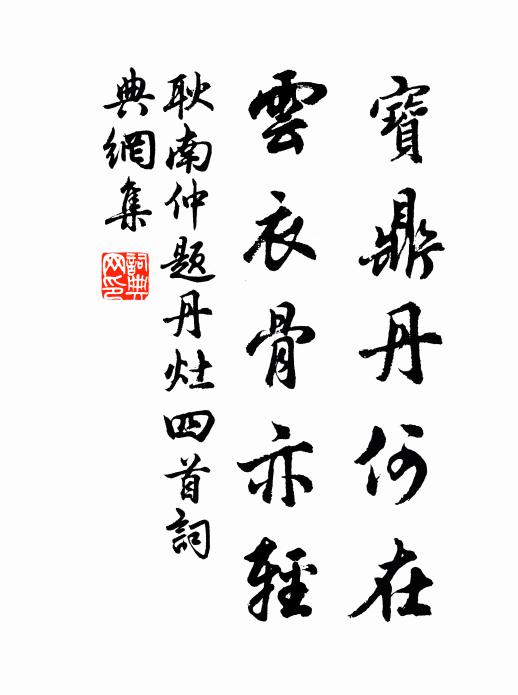 寶鼎丹何在
雲衣骨亦輕
耿南仲題丹灶四首詞
典網集
詞典网印